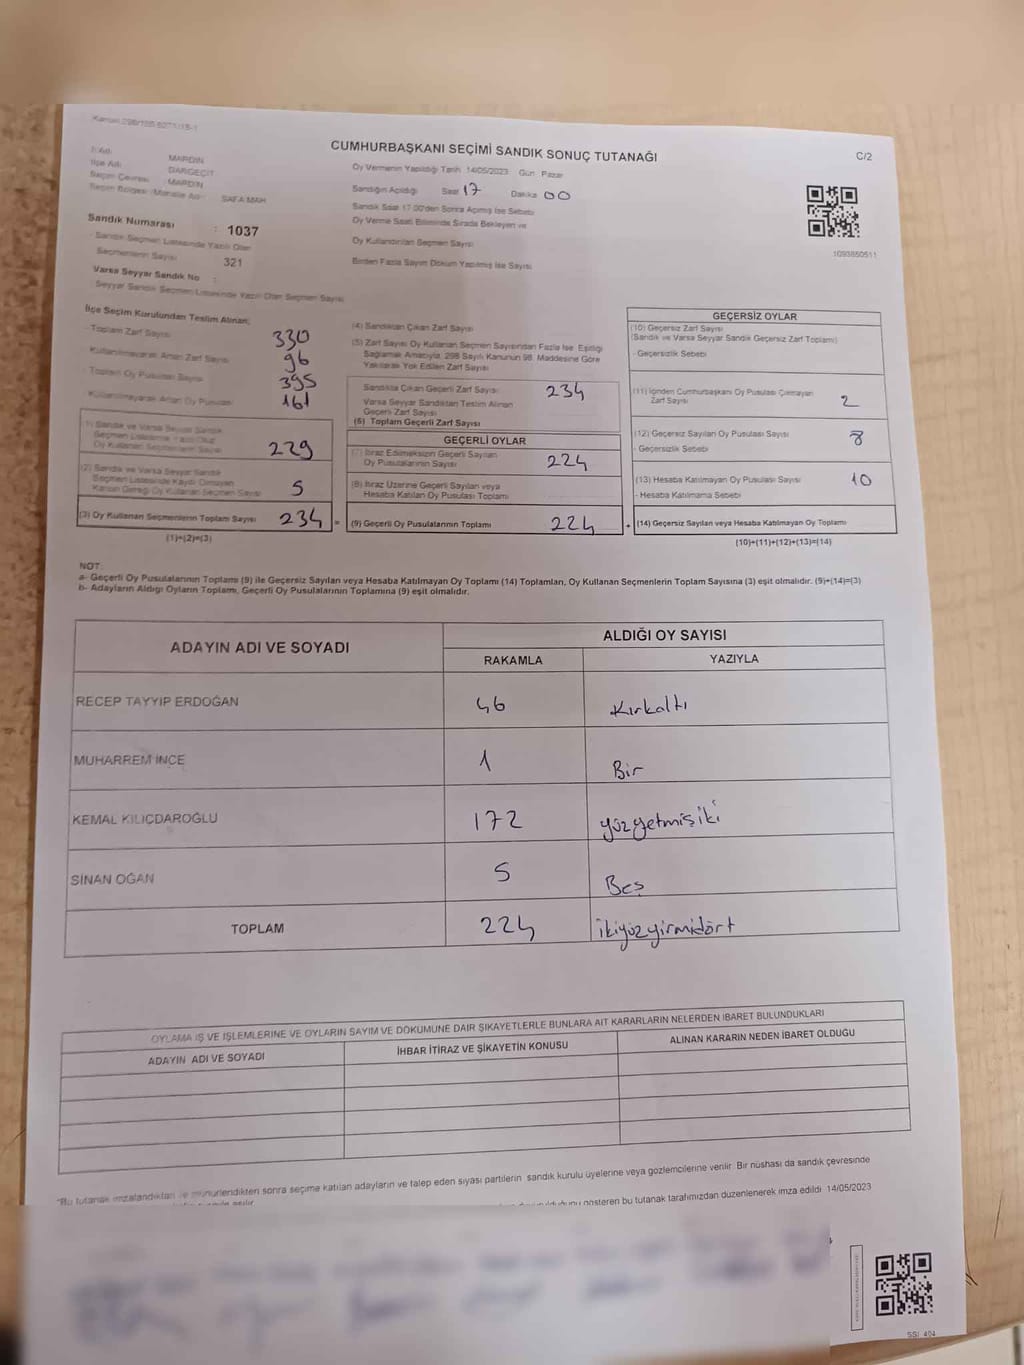 Kanun 298/105 6271/15-1
CUMHURBAŞKANI SEÇİMİ SANDIK SONUÇ TUTANAĞI
C/2
İl Adı: MARDİN
İlçe Adı: DARGEÇİT
Seçim Çevresi: MARDİN
SAFA MAH
Oy Vermenin Yapıldığı Tarih 14/05/2023 Gün Pazar
Sandığın Açıldığı Saat 17 Dakika 00
Sandık Saat 17.00'den Sonra Açılmış İse Sebebi
Oy Verme Saati Bitiminde Sırada Bekleyen ve
Oy Kullandırılan Seçmen Sayısı
Birden Fazla Sayım Döküm Yapılmış İse Sayısı
1093850511
Sandık Numarası : 1037
- Sandık Seçmen Listesinde Yazılı Olan
Seçmenlerin Sayısı 321
Varsa Seyyar Sandık No :
- Seyyar Sandık Seçmen Listesinde Yazılı Olan Seçmen Sayısı
İlçe Seçim Kurulundan Teslim Alınan;
- Toplam Zarf Sayısı 330
- Kullanılmayarak Artan Zarf Sayısı 96
- Toplam Oy Pusulası Sayısı 395
- Kullanılmayarak Artan Oy Pusulası 161
(1) Sandık ve Varsa Seyyar Sandık
Seçmen Listesinde Yazılı Olup
Oy Kullanan Seçmenlerin Sayısı 229
(2) Sandık ve Varsa Seyyar Sandık
Seçmen Listesinde Kaydı Olmayan
Kanun Gereği Oy Kullanan Seçmen Sayısı 5
(3) Oy Kullanan Seçmenlerin Toplam Sayısı 234 =
(1)+(2)=(3)
(4) Sandıktan Çıkan Zarf Sayısı
(5) Zarf Sayısı Oy Kullanan Seçmen Sayısından Fazla İse, Eşitliği
Sağlamak Amacıyla, 298 Sayılı Kanunun 98. Maddesine Göre
Yakılarak Yok Edilen Zarf Sayısı
Sandıkta Çıkan Geçerli Zarf Sayısı 234
Varsa Seyyar Sandıktan Teslim Alınan
Geçerli Zarf Sayısı
(6) Toplam Geçerli Zarf Sayısı
GEÇERLİ OYLAR
(7) İtiraz Edilmeksizin Geçerli Sayılan
Oy Pusulalarının Sayısı 224
(8) İtiraz Üzerine Geçerli Sayılan veya
Hesaba Katılan Oy Pusulası Toplamı
(9) Geçerli Oy Pusulalarının Toplamı 224 +
GEÇERSİZ OYLAR
(10) Geçersiz Zarf Sayısı
(Sandık ve Varsa Seyyar Sandık Geçersiz Zarf Toplamı)
- Geçersizlik Sebebi
(11) İçinden Cumhurbaşkanı Oy Pusulası Çıkmayan
Zarf Sayısı 2
(12) Geçersiz Sayılan Oy Pusulası Sayısı 8
- Geçersizlik Sebebi
(13) Hesaba Katılmayan Oy Pusulası Sayısı 10
- Hesaba Katılmama Sebebi
(14) Geçersiz Sayılan veya Hesaba Katılmayan Oy Toplamı
(10)+(11)+(12)+(13)=(14)
NOT:
a- Geçerli Oy Pusulalarının Toplamı (9) ile Geçersiz Sayılan veya Hesaba Katılmayan Oy Toplamı (14) Toplamları, Oy Kullanan Seçmenlerin Toplam Sayısına (3) eşit olmalıdır. (9)+(14)=(3)
b- Adayların Aldığı Oyların Toplamı, Geçerli Oy Pusulalarının Toplamına (9) eşit olmalıdır.
ADAYIN ADI VE SOYADI
ALDIĞI OY SAYISI
RAKAMLA YAZIYLA
RECEP TAYYİP ERDOĞAN 46 Kırkaltı
MUHARREM İNCE 1 Bir
KEMAL KILIÇDAROĞLU 172 yüzyetmişiki
SİNAN OĞAN 5 Beş
TOPLAM 224 ikiyüzyirmidört
OYLAMA İŞ VE İŞLEMLERİNE VE OYLARIN SAYIM VE DÖKÜMÜNE DAİR ŞİKAYETLERLE BUNLARA AİT KARARLARIN NELERDEN İBARET BULUNDUKLARI
ADAYIN ADI VE SOYADI İHBAR İTİRAZ VE ŞİKAYETİN KONUSU ALINAN KARARIN NEDEN İBARET OLDUĞU
*Bu tutanak imzalandıktan ve mühürlendikten sonra seçime katılan adayların ve talep eden siyasi partilerin sandık kurulu üyelerine veya gözlemcilerine verilir. Bir nüshası da sandık çevresinde
olduğunu gösteren bu tutanak tarafımızdan düzenlenerek imza edildi. 14/05/2023
SSİ 404